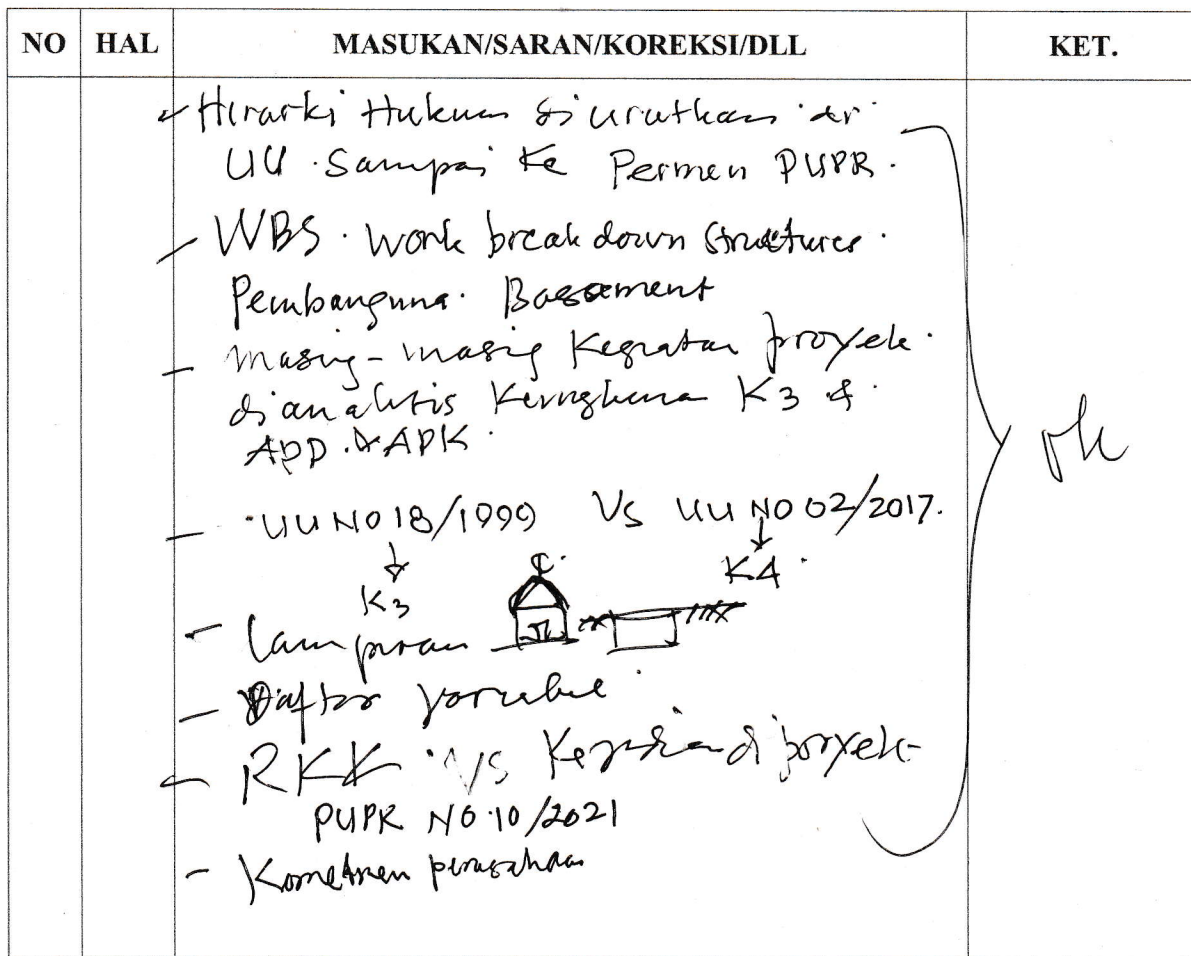 NO HAL MASUKAN/SARAN/KOREKSI/DLL KET.
- Hirarki Hukum diurutkan dr
UU Sampai Ke Permen PUPR.
- WBS. Work breakdown Structures.
Pembanguna. Bassement
- masing-masing Kegiatan proyek.
dianalitis K3 &
APD & APK.
- UU NO 18/1999 VS UU NO 02/2017.
K3 K4
- Lampiran
- Daftar
- RKK VS di proyek
PUPR NO.10/2021
- Komitmen perusahaan
ok